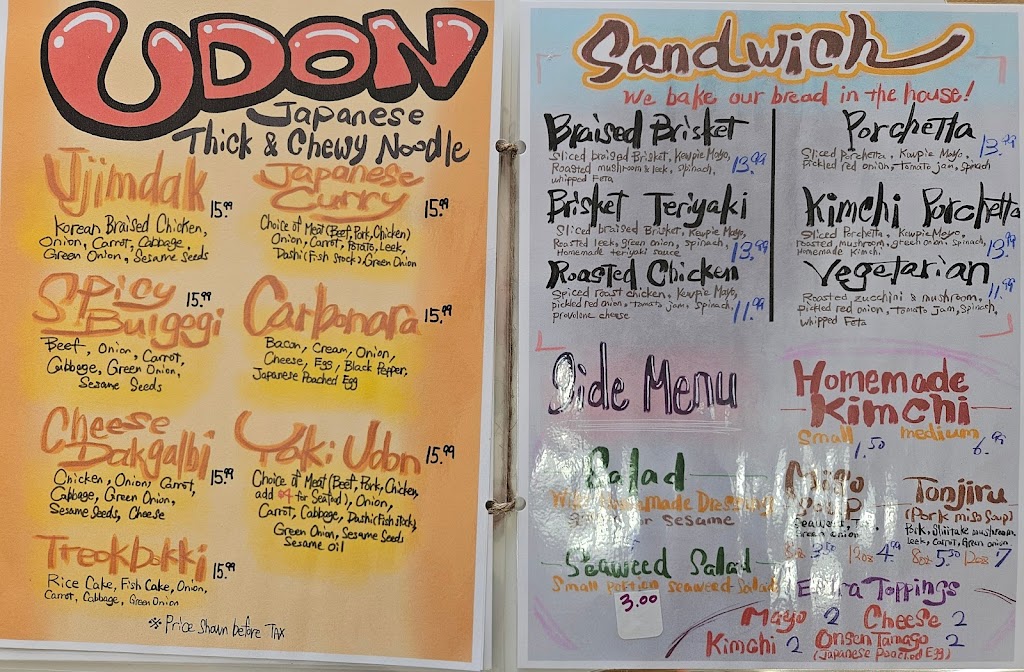 UDON
Japanese
Thick & Chewy Noodle
Jjimdak 15.99
Korean Braised Chicken,
Onion, Carrot, Cabbage,
Green Onion, Sesame Seeds
Spicy 15.99
Bulgogi
Beef, Onion, Carrot,
Cabbage, Green Onion,
Sesame Seeds
Cheese
Dakgalbi 15.99
Chicken, Onion, Carrot,
Cabbage, Green Onion,
Sesame Seeds, Cheese
Tteokbokki 15.99
Rice Cake, Fish Cake, Onion,
Carrot, Cabbage, Green Onion
Japanese
Curry 15.99
Choice of Meat (Beef, Pork, Chicken)
Onion, Carrot, Potato, Leek,
Dashi (Fish Stock), Green Onion
Carbonara 15.99
Bacon, Cream, Onion,
Cheese, Egg, Black Pepper,
Japanese Poached Egg
Yaki Udon 15.99
Choice of Meat (Beef, Pork, Chicken,
add $4 for Seafood), Onion,
Carrot, Cabbage, Dashi (Fish Stock)
Green Onion, Sesame Seeds
Sesame oil
※ Price Shown before TAX
Sandwich
We bake our bread in the house!
Braised Brisket
Sliced braised Brisket, Kewpie Mayo,
Roasted mushroom & leek, Spinach,
whipped Feta 13.99
Brisket Teriyaki
Sliced braised Brisket, Kewpie Mayo,
Roasted leek, green onion, spinach,
Homemade teriyaki sauce 13.99
Roasted Chicken
Spiced roast chicken, Kewpie Mayo,
pickled red onion, tomato jam, Spinach,
provolone cheese 11.99
Porchetta
Sliced Porchetta, Kewpie Mayo, 13.99
pickled red onion, tomato jam, spinach
Kimchi Porchetta
Sliced Porchetta, Kewpie Mayo,
roasted mushroom, green onion, spinach,
Homemade Kimchi 13.99
Vegetarian
Roasted zucchini & mushroom, 11.99
pickled red onion, tomato jam, Spinach,
whipped Feta
Side Menu
Salad
With Homemade Dressing
or Sesame
Seaweed Salad
Small portion seaweed salad
3.00
Homemade
Kimchi
small medium
1.50 6.99
Miso
Soup
Seaweed,
Green onion
8oz 3.50 12oz 4.99
Tonjiru
(Pork miso soup)
Pork, Shiitake mushroom,
leek, carrot, Green onion
8oz 5.50 12oz 7
Extra Toppings
Mayo 2 Cheese 2
Kimchi 2 Onsen Tamago 2
(Japanese Poached Egg)